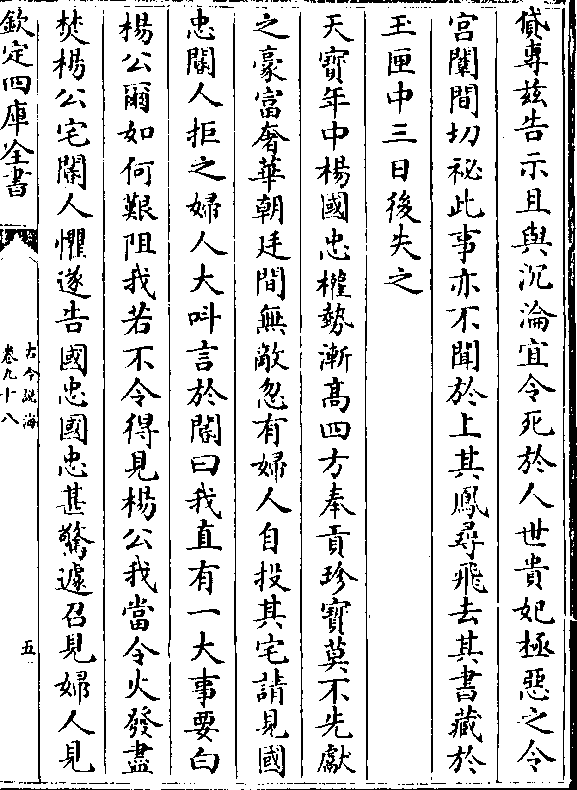 貸專兹告示且與沉淪宜令死於人世貴妃極惡之令
宫闈間切祕此事亦不聞於上其鳳尋飛去其書藏於
玉匣中三日後失之
天寳年中楊國忠權勢漸髙四方奉貢珍寳莫不先獻
之豪富奢華朝廷間無敵忽有婦人自投其宅請見國
忠閽人拒之婦人大呌言於閽曰我直有一大事要白
楊公爾如何艱阻我若不令得見楊公我當令火發盡
焚楊公宅閽人懼遂告國忠國忠甚驚遽召見婦人見
欽定四庫全書
古今說海
卷九十八
五